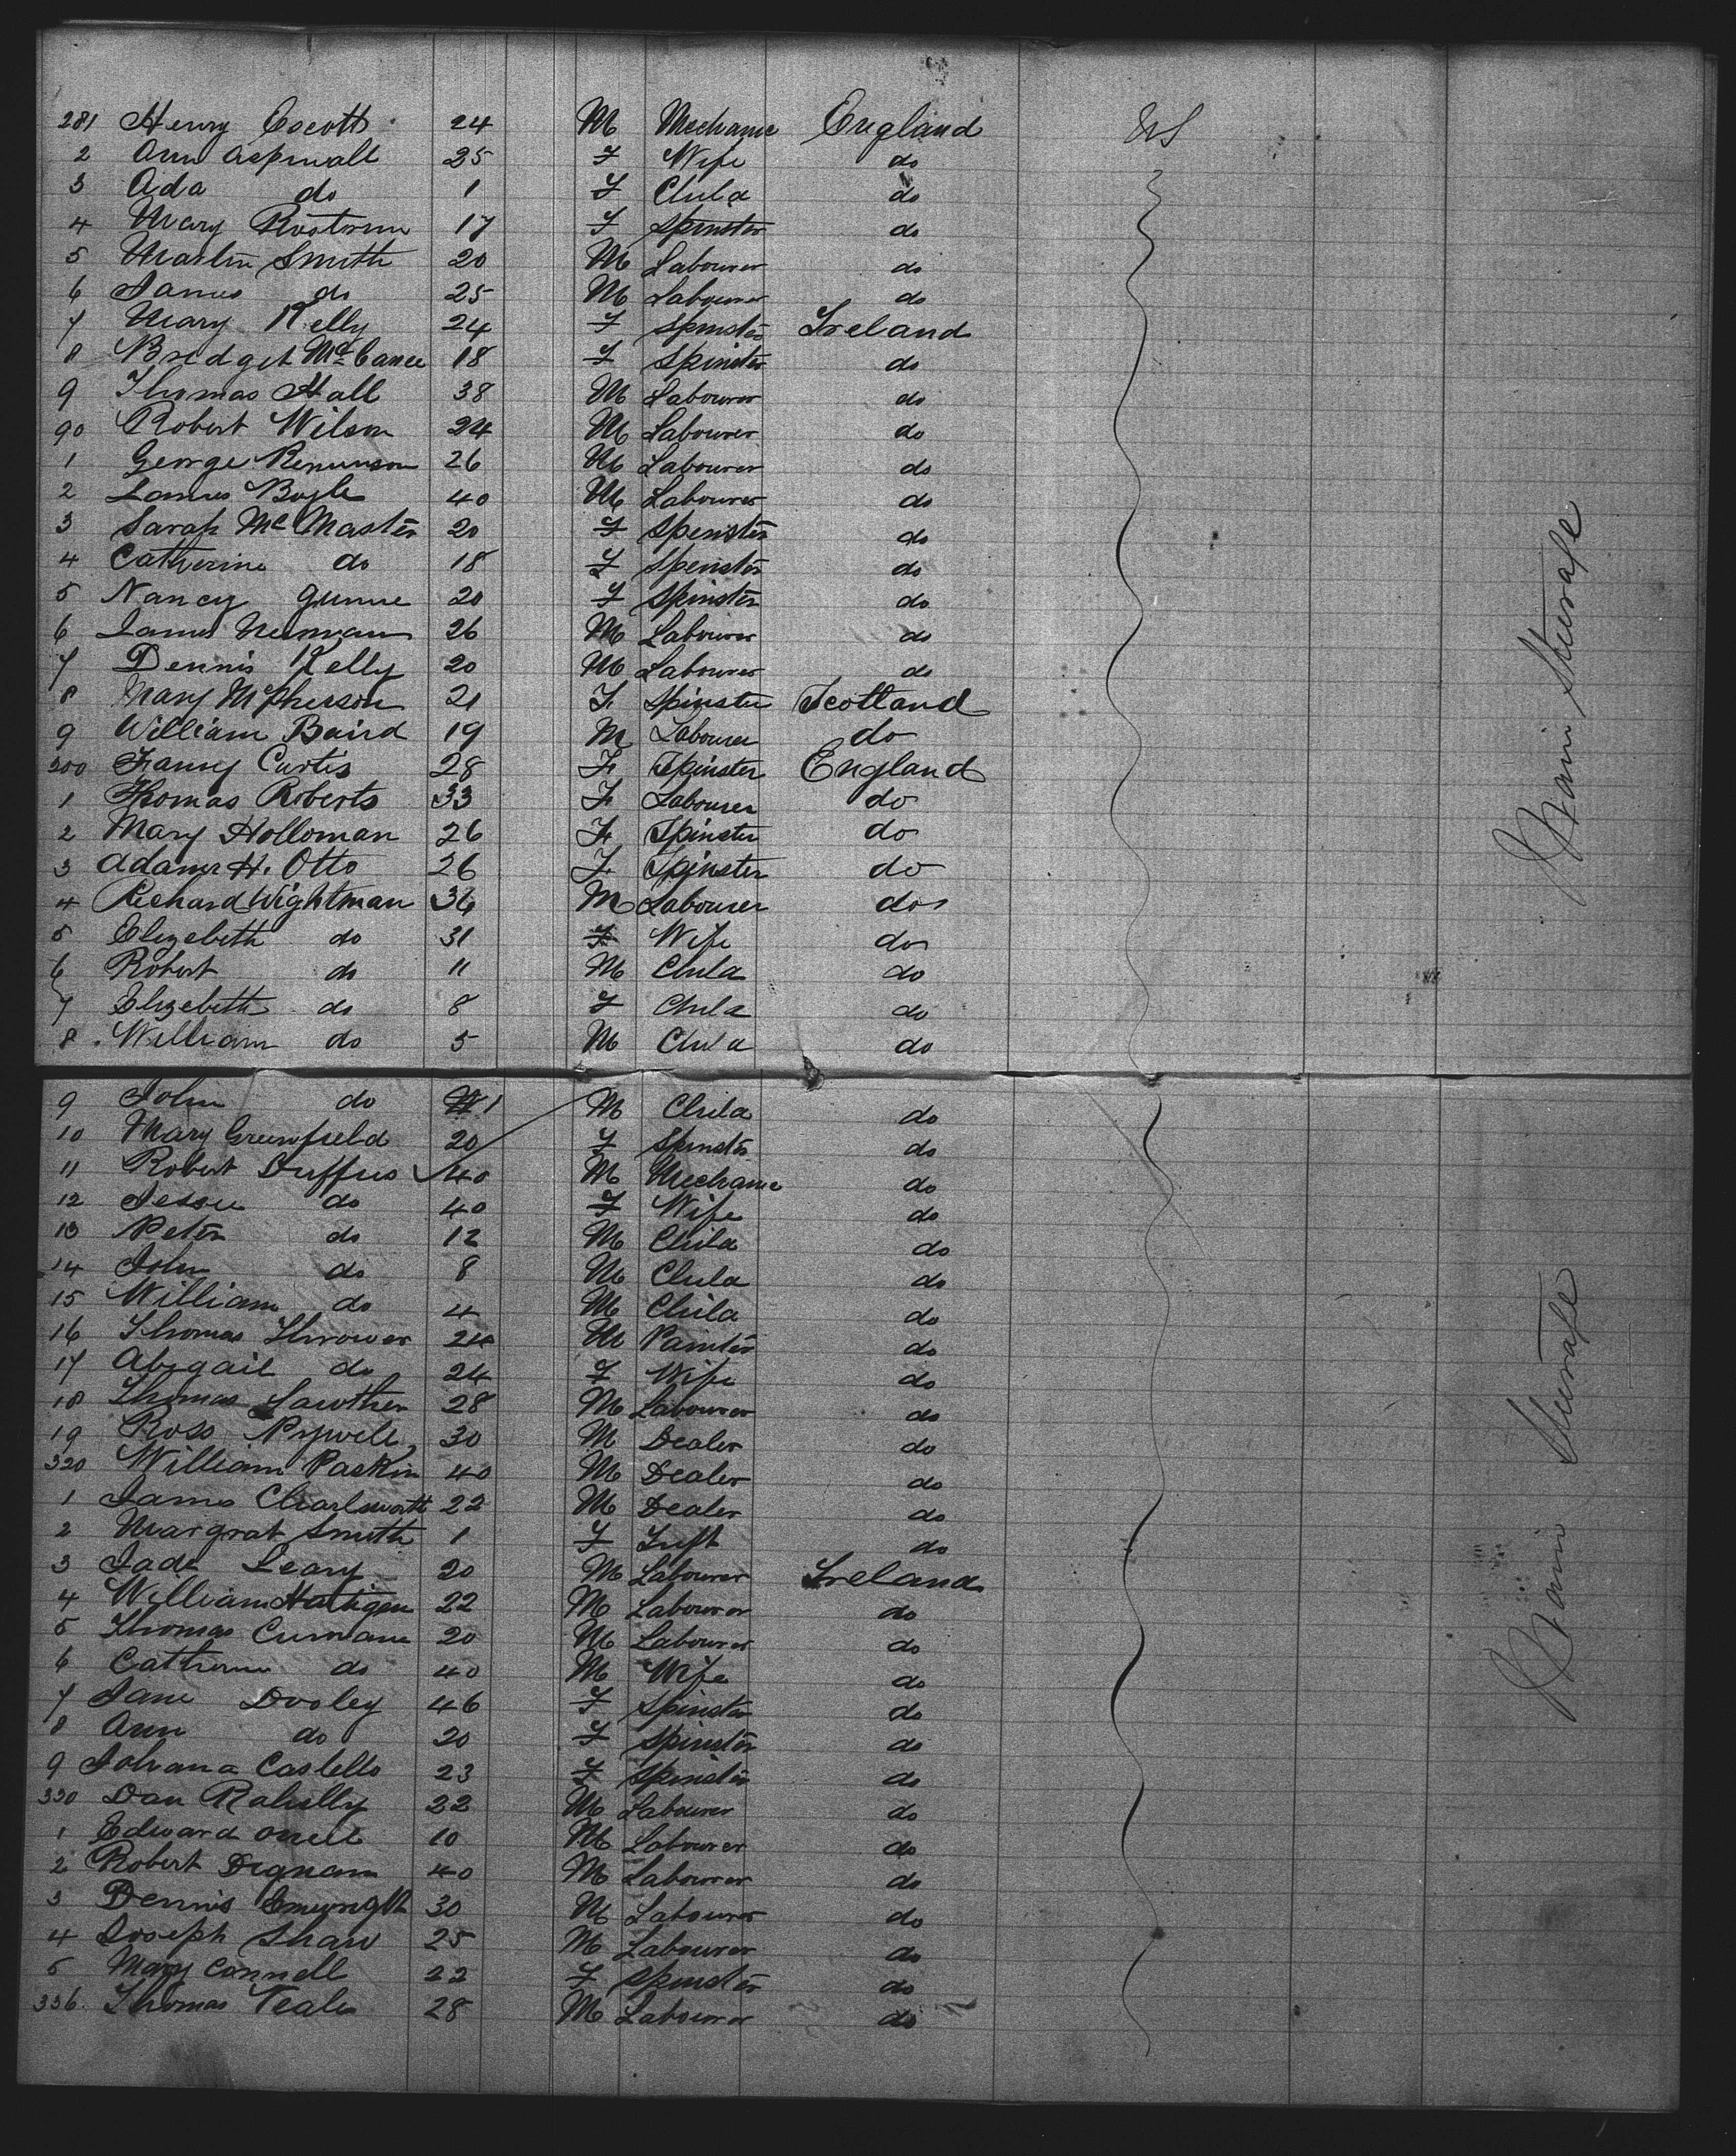 281 Henry Escott 24 M Mechanic England US
2 Ann Aspinwall 25 F Wife do
3 Ada do 1 F Child do
4 Mary Rostorm 17 F Spinster do
5 Martin Smith 20 M Labourer do
6 James do 25 M Labourer do
7 Mary Kelly 24 F Spinster Ireland
8 Bridget McCance 18 F Spinster do
9 Thomas Hall 38 M Labourer do
90 Robert Wilson 24 M Labourer do
1 George 26 M Labourer do
2 James Boyle 40 M Labourer do
3 Sarah McMaster 20 F Spinster do
4 Catherine do 18 F Spinster do
5 Nancy Gunne 20 F Spinster do
6 James 26 M Labourer do
7 Dennis Kelly 20 M Labourer do
8 Mary McPherson 21 F Spinster Scotland
9 William Baird 19 M Labourer do
300 Fanny Curtis 28 F Spinster England
1 Thomas Roberts 33 F Labourer do
2 Mary Holloman 26 F Spinster do
3 H. Otto 26 F Spinster do
4 Richard Wightman 36 M Labourer do
5 Elizebeth do 31 F Wife do
6 Robert do 11 M Child do
7 Elizebeth do 8 F Child do
8 William do 5 M Child do
9 John do 1 M Child do
10 Mary Greenfield 20 F Spinster do
11 Robert Duffus 40 M Mechanic do
12 Jessie do 40 F Wife do
13 Peter do 12 M Child do
14 John do 8 M Child do
15 William do 4 M Child do
16 Thomas Thrower 24 M Painter do
17 Abigail do 24 F Wife do
18 Thomas Lawther 28 M Labourer do
19 Ross 30 M Dealer do
320 William Paskin 40 M Dealer do
1 James Charlsworth 22 M Dealer do
2 Margrat Smith 1 F Inft do
3 Leary 20 M Labourer Ireland
4 William 22 M Labourer do
5 Thomas 20 M Labourer do
6 Catherine do 40 M Wife do
7 Jane Dooley 46 F Spinster do
8 Ann do 20 F Spinster do
9 Johana Castello 23 F Spinster do
330 Dan 22 M Labourer do
1 Edward Oneil 10 M Labourer do
2 Robert Dignam 40 M Labourer do
3 Dennis 30 M Labourer do
4 Joseph Shaw 25 M Labourer do
5 Mary Connell 22 F Spinster do
336 Thomas Veale 28 M Labourer do
Main Steerage
Main Steerage